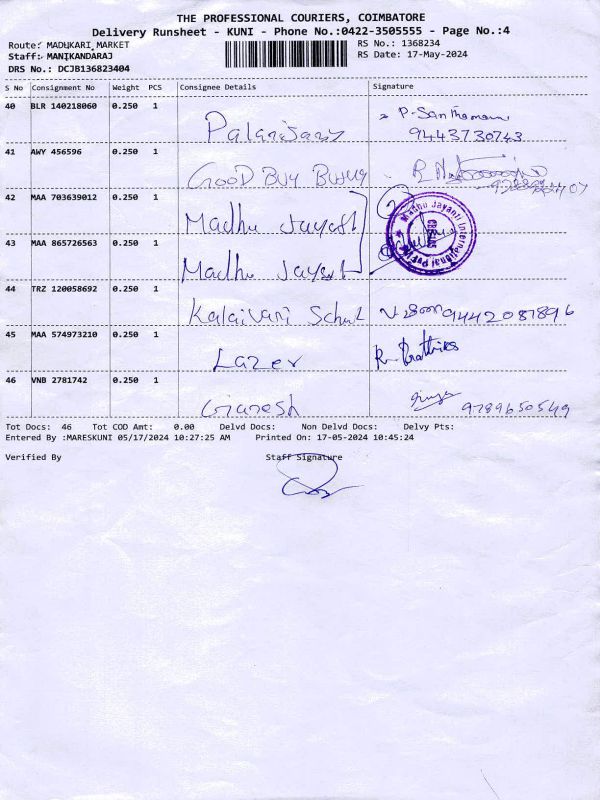 THE PROFESSIONAL COURIERS, COIMBATORE
Delivery Runsheet - KUNI - Phone No.:0422-3505555 - Page No.:4
Route: MADUKARI_MARKET
RS No.: 1368234
Staff: MANIKANDARAJ
RS Date: 17-May-2024
DRS No.: DCJB136823404
S No Consignment No Weight PCS Consignee Details Signature
40 BLR 140218060 0.250 1
P-Santhamani
9443730743
41 AWY 456596 0.250 1
GOOD BUY
42 MAA 703639012 0.250 1
Madhu Jayanti
Madhu Jayanti International Pvt Ltd
43 MAA 865726563 0.250 1
Madhu Jayanti
44 TRZ 120058692 0.250 1
Kalaivani School 9442087896
45 MAA 574973210 0.250 1
Lazer
46 VNB 2781742 0.250 1
Ganesh 9789650549
Tot Docs: 46 Tot COD Amt: 0.00 Delvd Docs: Non Delvd Docs: Delvy Pts:
Entered By :MARESKUNI 05/17/2024 10:27:25 AM Printed On: 17-05-2024 10:45:24
Verified By Staff Signature